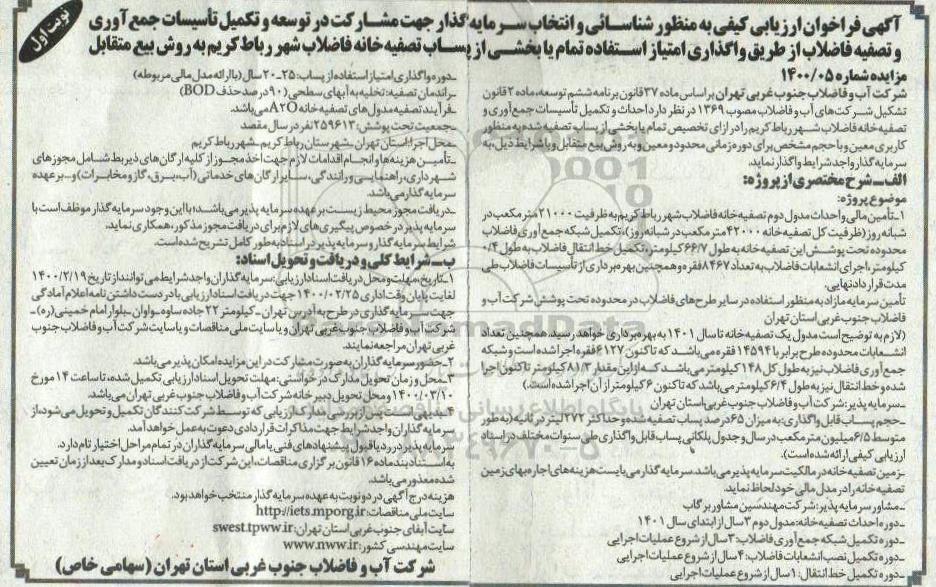 نوبت اول
آگهی فراخوان ارزیابی کیفی به منظور شناسائی و انتخاب سرمایه گذار جهت مشارکت در توسعه و تکمیل تأسیسات جمع آوری
و تصفیه فاضلاب از طریق واگذاری امتیاز استفاده تمام یا بخشی از پساب تصفیه خانه فاضلاب شهر رباط کریم به روش بیع متقابل
مزایده شماره ۱۴۰۰/۰۵
شرکت آب و فاضلاب جنوب غربی تهران بر اساس ماده ۳۷ قانون برنامه ششم توسعه، ماده ۲ قانون
تشکیل شرکت های آب و فاضلاب مصوب ۱۳۶۹ در نظر دارد احداث و تکمیل تأسیسات جمع آوری و
تصفیه خانه فاضلاب شهر رباط کریم را در ازای تخصیص تمام یا بخشی از پساب تصفیه شده به منظور
کاربری معین و با حجم مشخص برای دوره زمانی محدود و معین و به روش بیع متقابل و با شرایط ذیل، به
سرمایه گذار واجد شرایط واگذار نماید.
الف ـ شرح مختصری از پروژه:
موضوع پروژه:
۱ـ تأمین مالی و احداث مدول دوم تصفیه خانه فاضلاب شهر رباط کریم به ظرفیت ۲۱۰۰۰ متر مکعب در
شبانه روز (ظرفیت کل تصفیه خانه ۴۲۰۰۰ متر مکعب در شبانه روز)، تکمیل شبکه جمع آوری فاضلاب
محدوده تحت پوشش این تصفیه خانه به طول ۶۶/۷ کیلومتر، تکمیل خط انتقال فاضلاب به طول ۰/۴
کیلومتر، اجرای انشعابات فاضلاب به تعداد ۸۴۶۷ فقره و همچنین بهره برداری از تأسیسات فاضلاب طی
مدت قرارداد نهایی.
تأمین سرمایه مازاد به منظور استفاده در سایر طرح های فاضلاب در محدوده تحت پوشش شرکت آب و
فاضلاب جنوب غربی استان تهران
(لازم به توضیح است مدول یک تصفیه خانه تا سال ۱۴۰۱ به بهره برداری خواهد رسید. همچنین تعداد
انشعابات محدوده طرح برابر با ۱۴۵۹۴ فقره می باشد که تاکنون ۶۱۲۷ فقره اجرا شده است و شبکه
جمع آوری فاضلاب نیز به طول کل ۱۴۸ کیلومتر می باشد که از این مقدار ۸۱/۳ کیلومتر تاکنون اجرا
شده و خط انتقال نیز به طول ۶/۴ کیلومتر می باشد که تاکنون ۶ کیلومتر از آن اجرا شده است.)
ـ سرمایه پذیر: شرکت آب و فاضلاب جنوب غربی استان تهران
ـ حجم پساب قابل واگذاری: به میزان ۶۵ درصد پساب تصفیه شده و حداکثر ۲۷۲ لیتر در ثانیه (به طور
متوسط ۶/۵ میلیون متر مکعب در سال و جدول پلکانی پساب قابل واگذاری طی سنوات مختلف در اسناد
ارزیابی کیفی ارائه شده است).
ـ زمین تصفیه خانه در مالکیت سرمایه پذیر می باشد. سرمایه گذار می بایست هزینه های اجاره بهای زمین
تصفیه خانه را در مدل مالی خود لحاظ نماید.
ـ مشاور سرمایه پذیر: شرکت مهندسین مشاور پر گاب
ـ دوره احداث تصفیه خانه: مدول دوم ۳ سال از ابتدای سال ۱۴۰۱
ـ دوره تکمیل شبکه جمع آوری فاضلاب: ۳ سال از شروع عملیات اجرایی
ـ دوره تکمیل نصب انشعابات فاضلاب: ۴ سال از شروع عملیات اجرایی
ـ دوره تکمیل خط انتقال: ۱ سال از شروع عملیات اجرایی
ـ دوره واگذاری امتیاز استفاده از پساب: ۲۵-۲۰ سال (با ارائه مدل مالی مربوطه)
ـ راندمان تصفیه: تخلیه به آبهای سطحی (۹۰ درصد حذف BOD)
ـ فرآیند تصفیه مدول های تصفیه خانه A2O می باشد.
ـ جمعیت تحت پوشش: ۲۵۹۶۱۳ نفر در سال مقصد
ـ محل اجرا: استان تهران ـ شهرستان رباط کریم ـ شهر رباط کریم
ـ تأمین هزینه ها و انجام اقدامات لازم جهت اخذ مجوز از کلیه ارگان های ذیربط شامل مجوزهای
شهرداری، راهنمایی و رانندگی، سایر ارگان های خدماتی (آب، برق، گاز و مخابرات) و... بر عهده
سرمایه گذار می باشد.
ـ دریافت مجوز محیط زیست بر عهده سرمایه پذیر می باشد؛ با این وجود سرمایه گذار موظف است با
سرمایه پذیر در خصوص پیگیری های لازم برای دریافت مجوز مذکور، همکاری نماید.
شرایط سرمایه گذار و سرمایه پذیر در اسناد به طور کامل تشریح شده است.
ب ـ شرایط کلی و دریافت و تحویل اسناد:
۱ـ تاریخ، مهلت و محل دریافت اسناد ارزیابی: سرمایه گذاران واجد شرایط می توانند از تاریخ ۱۴۰۰/۲/۱۹
لغایت پایان وقت اداری ۱۴۰۰/۰۲/۲۵ جهت دریافت اسناد ارزیابی با در دست داشتن نامه اعلام آمادگی
جهت سرمایه گذاری در طرح به آدرس تهران ـ کیلومتر ۲۲ جاده ساوه ـ اوان ـ بلوار امام خمینی (ره) ـ
شرکت آب و فاضلاب جنوب غربی تهران و یا سایت ملی مناقصات و یا سایت شرکت آب و فاضلاب جنوب
غربی تهران مراجعه نمایند.
۲ـ حضور سرمایه گذاران به صورت مشارکت در این مزایده امکان پذیر می باشد.
۳ـ محل و زمان تحویل مدارک درخواستی: مهلت تحویل اسناد ارزیابی تکمیل شده، تا ساعت ۱۴ مورخ
۱۴۰۰/۰۳/۱۰ و محل تحویل دبیرخانه شرکت آب و فاضلاب جنوب غربی تهران می باشد.
۴ـ بدیهی است پس از بررسی مدارک ارزیابی که توسط شرکت کنندگان تکمیل و تحویل می شود، از
سرمایه گذاران واجد شرایط جهت مذاکرات قراردادی دعوت به عمل خواهد آمد.
سرمایه پذیر در رد یا قبول پیشنهادهای فنی یا مالی سرمایه گذاران در تمام مراحل اختیار تام دارد.
به استناد بند ماده ۱۶ قانون برگزاری مناقصات، این شرکت از دریافت اسناد و مدارک بعد از زمان تعیین
شده معذور می باشد.
هزینه درج آگهی در دو نوبت به عهده سرمایه گذار منتخب خواهد بود.
سایت ملی مناقصات: http://iets.mporg.ir
سایت آبفای جنوب غربی استان تهران: swest.tpww.ir
سایت مهندسی کشور: www.nww.ir
شرکت آب و فاضلاب جنوب غربی استان تهران (سهامی خاص)